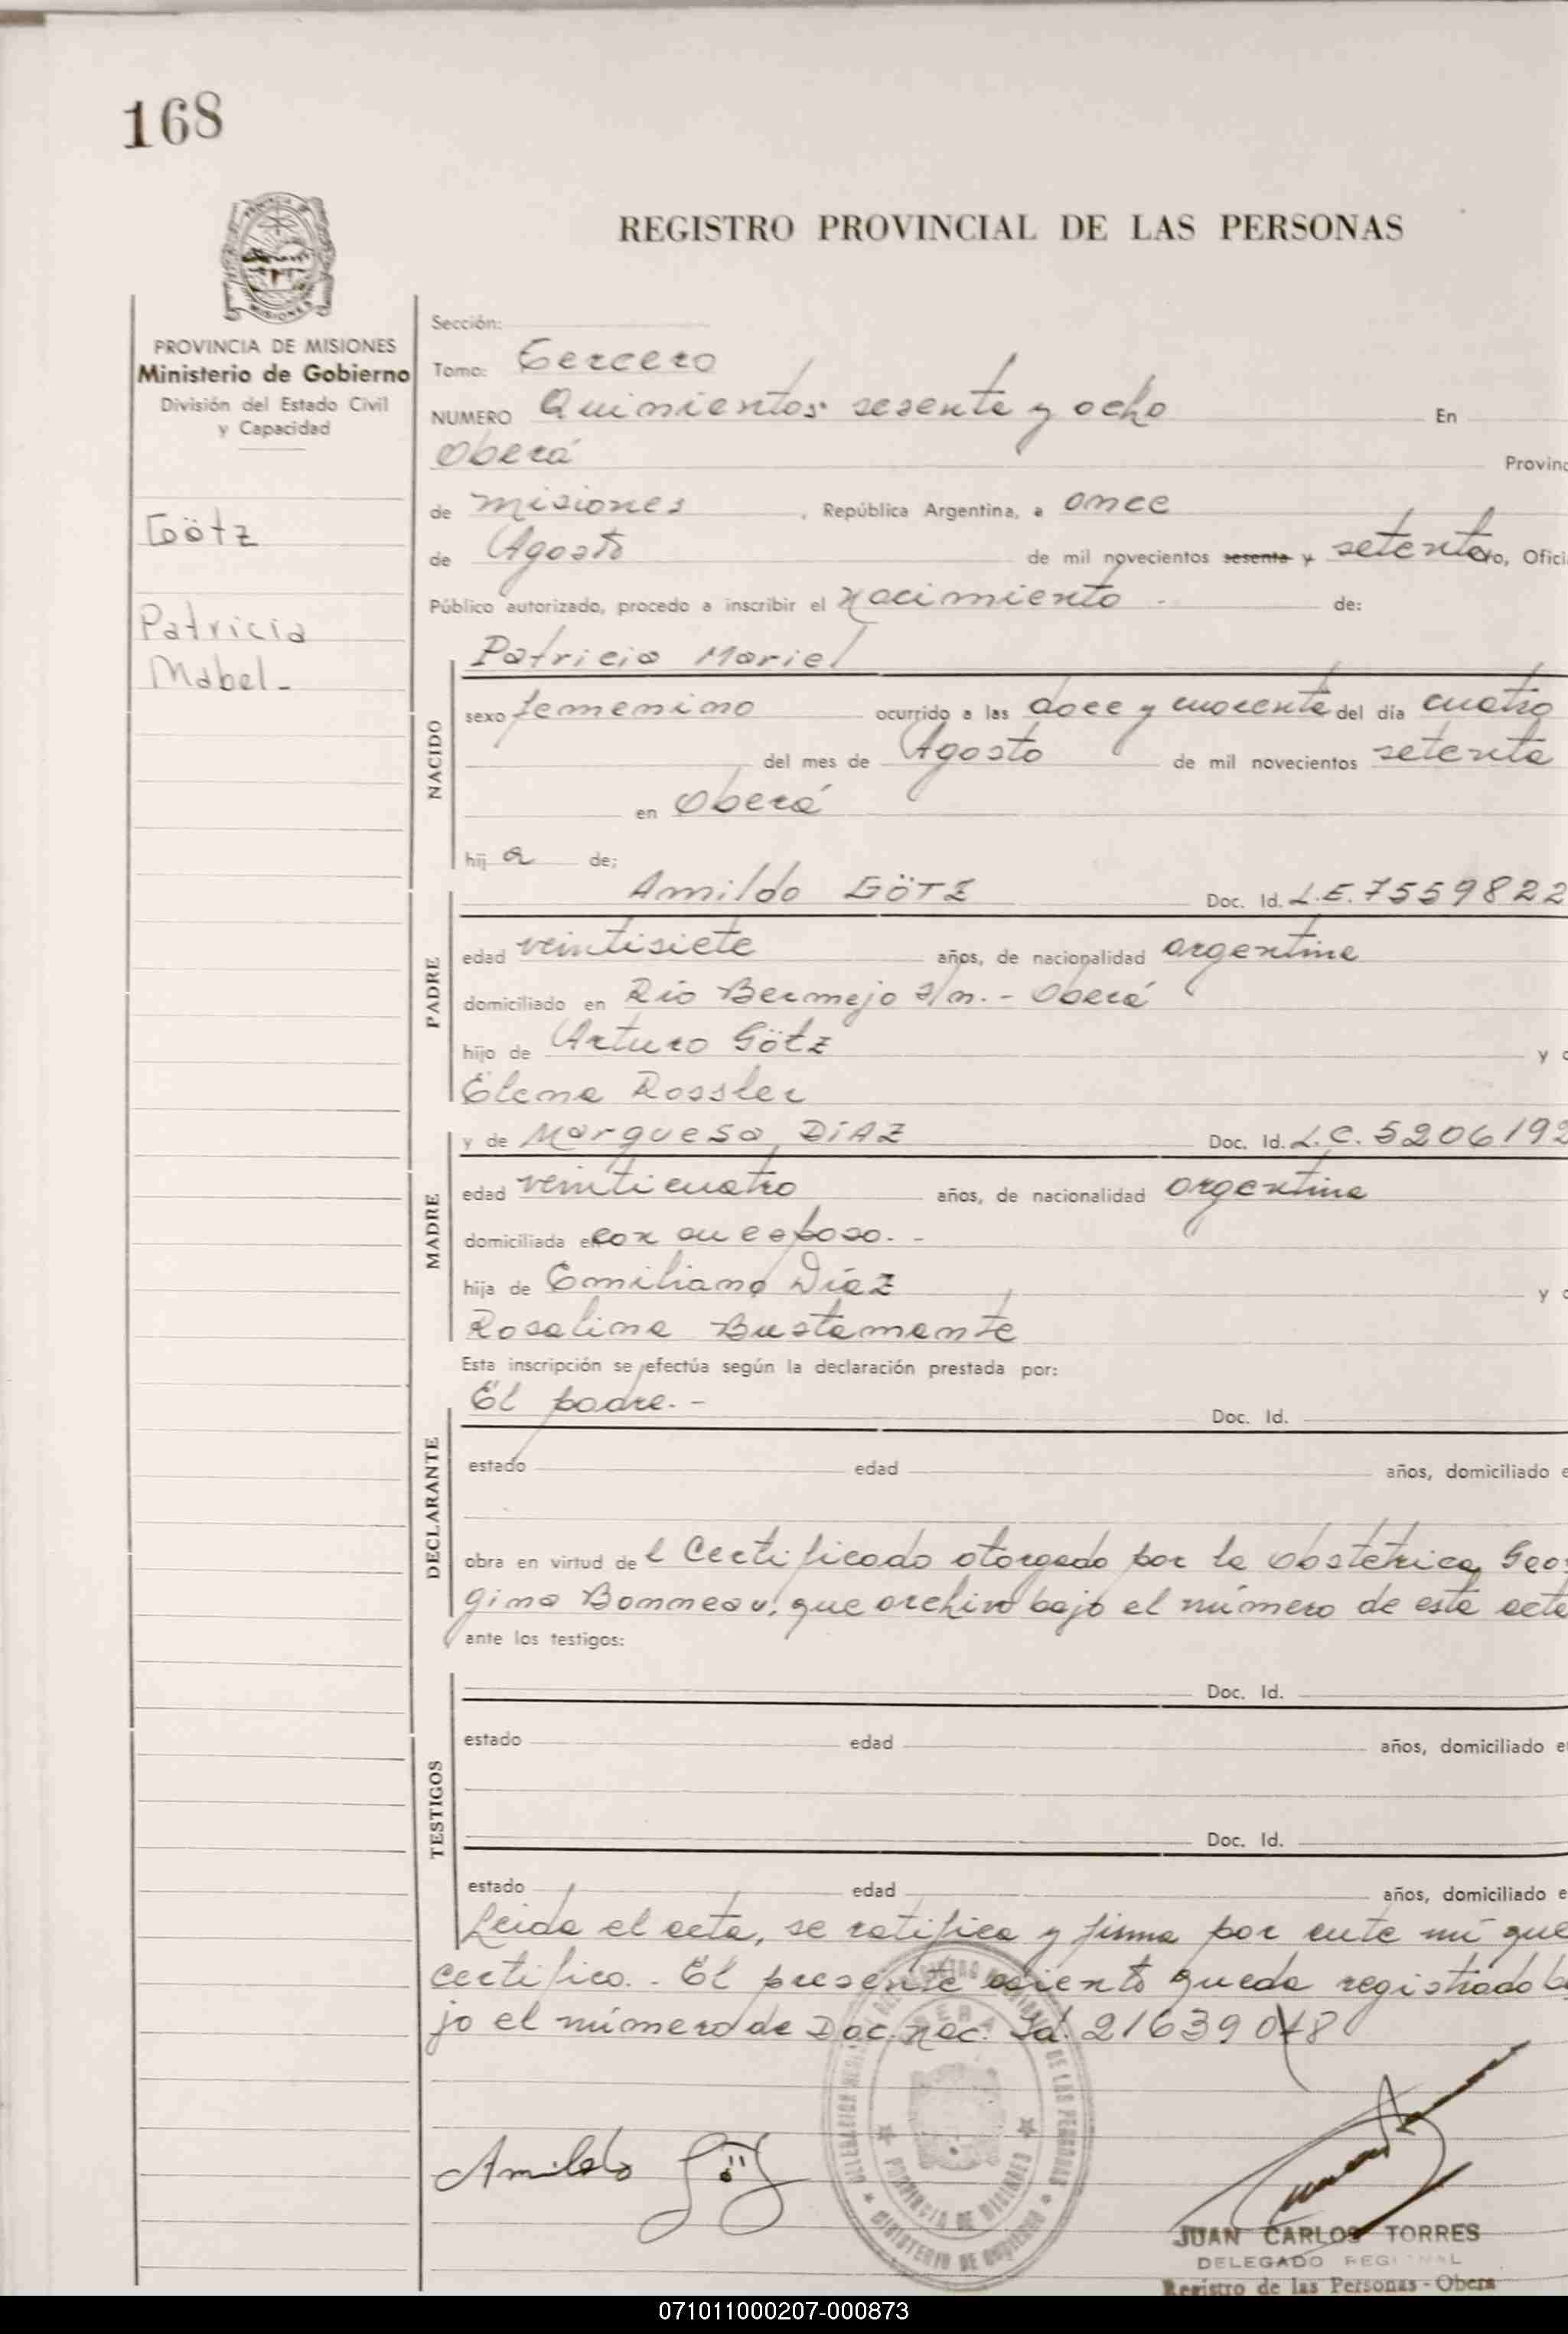 168
REGISTRO PROVINCIAL DE LAS PERSONAS
PROVINCIA DE MISIONES
Ministerio de Gobierno
División del Estado Civil
y Capacidad
Götz
Patricia
Mabel-
Sección:
Tomo: Tercero
NUMERO Quinientos sesenta y ocho En
Oberá Provinc
de misiones, República Argentina, a once
de Agosto de mil novecientos sesenta y setenta, Ofici
Público autorizado, procedo a inscribir el nacimiento - de:
NACIDO
Patricia Mariel
sexo femenino ocurrido a las doce y cuarenta del día cuatro
del mes de Agosto de mil novecientos setenta
en Oberá
hij a de;
PADRE
Amildo GÖTZ Doc. Id. L.E. 7559822
edad veintisiete años, de nacionalidad argentina
domiciliado en Río Bermejo s/n. - Oberá
hijo de Arturo Götz y
Elena Rossler
MADRE
y de Marquesa DÍAZ Doc. Id. L.C. 5206192
edad veinticuatro años, de nacionalidad argentina
domiciliada en con su esposo. -
hija de Emiliano Díaz y
Rosalina Bustamante
Esta inscripción se efectúa según la declaración prestada por:
DECLARANTE
El padre. - Doc. Id.
estado edad años, domiciliado e
obra en virtud de l Certificado otorgado por la obstetrica Geor
gina Bonneau, que archivo bajo el número de esta acta
ante los testigos:
TESTIGOS
Doc. Id.
estado edad años, domiciliado e
Doc. Id.
estado edad años, domiciliado e
Leida el acta, se ratifica y firma por ante mí que
certifico. - El presente asiento queda registrado ba
jo el número de Doc. nac. Id. 21639048
Amildo Götz
PROVINCIA DE MISIONES
MINISTERIO DE GOBIERNO
JUAN CARLOS TORRES
DELEGADO REGIONAL
Registro de las Personas - Obera
071011000207-000873